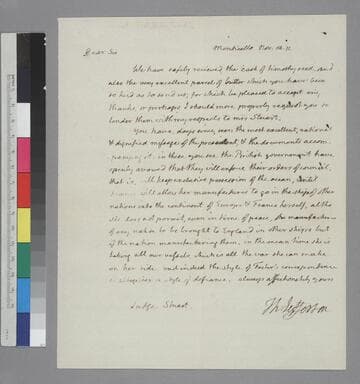 Dear Sir Monticello Nov. 12. 11
We have safely recieved the cask of timothy seed, and
also the very excellent parcel of butter which you have been
so kind as to send us; for which be pleased to accept my
thanks, or perhaps I should more properly request you to
tender them with my respects to mrs Stuart.
You have, days since, seen the most excellent, national
& dignified message of the president, & the documents accom-
panying it. in these you see the British government have
openly avowed that they will enforce their orders of council,
that is, will keep exclusive possession of the ocean, until
France will allow her manufactures to go in the ships of other
nations into the continent of Europe & France herself, altho'
she does not permit, even in time of peace, the manufactures
of any nation to be brought to England in other ships but
of the nation manufacturing them. in the mean time she is
taking all our vessels, which is all the war she can make
on her side. and indeed the style of Foster's correspondence
is altogether a style of defiance. always affectionately yours
Th: Jefferson
Judge Stuart.